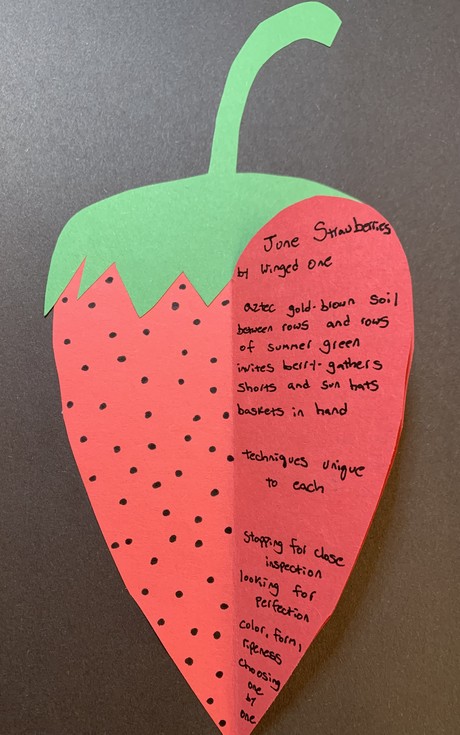 June Strawberries
by Winged One
aztec gold-brown soil
between rows and rows
of summer green
invites berry-gathers
shorts and sun hats
baskets in hand
techniques unique
to each
stopping for close
inspection
looking for
perfection
color, form,
ripeness
choosing
one
by
one